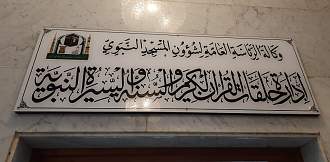 وكالة الرئاسة العامة لشؤون المسجد النبوي
إدارة حلقات القرآن الكريم والسنة والسيرة النبوية